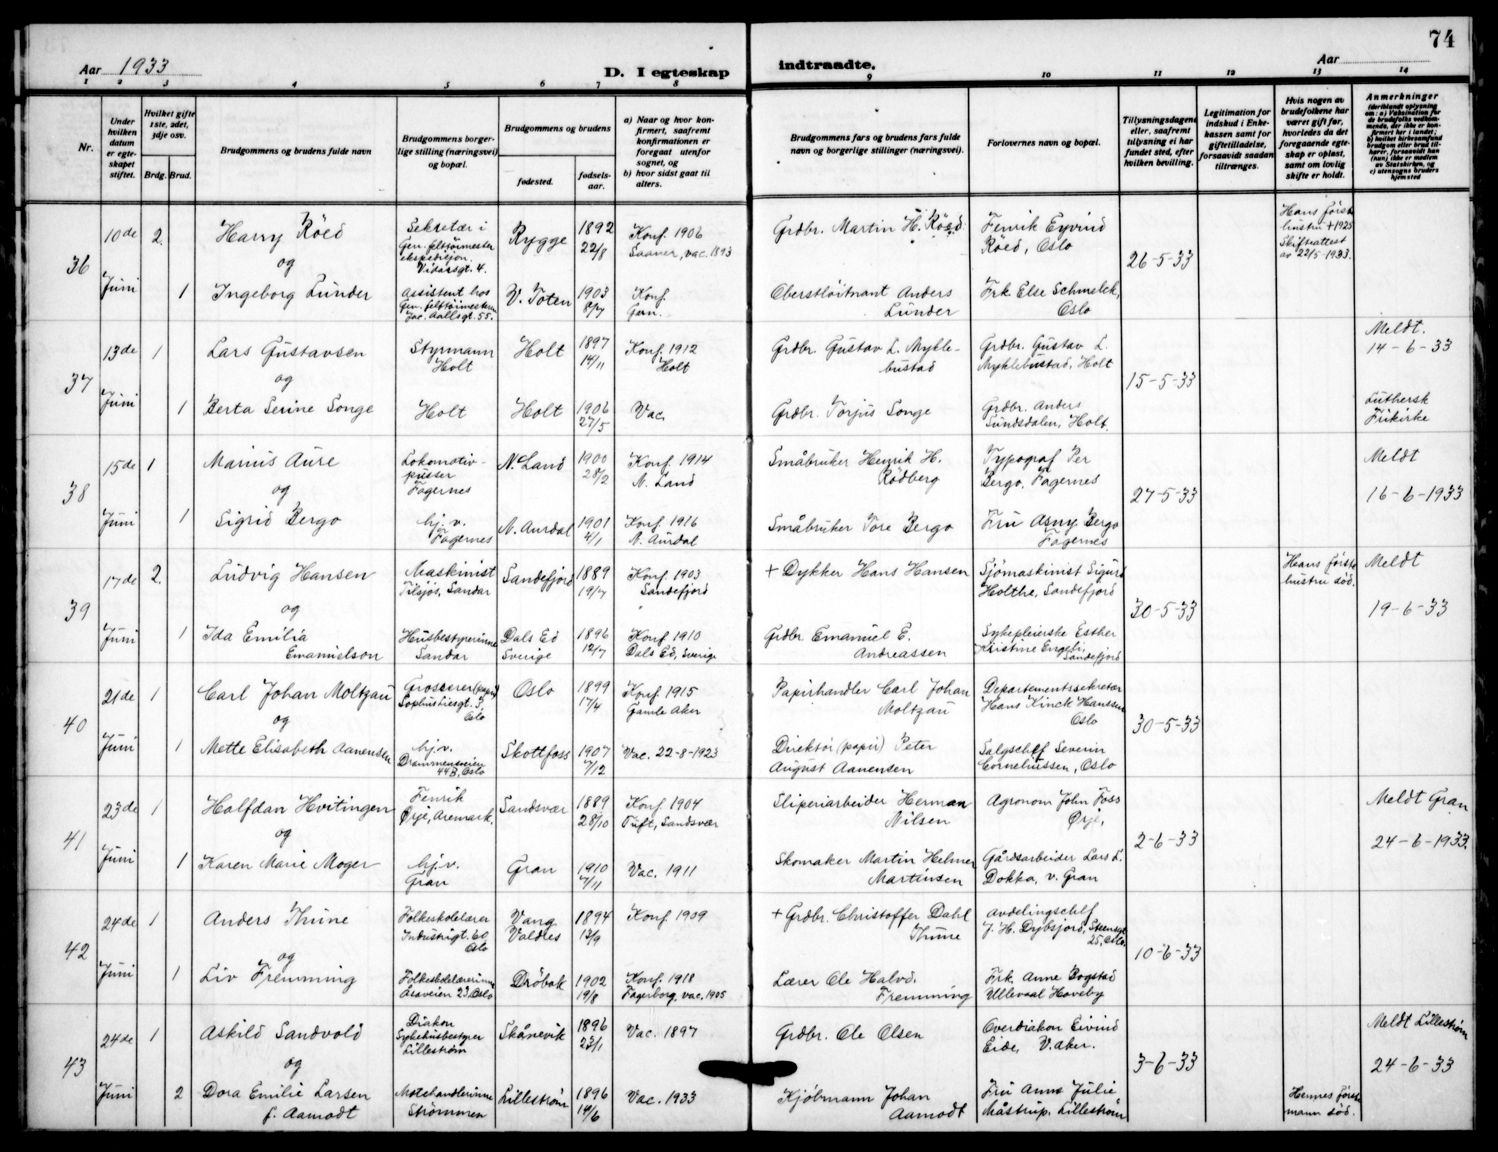 Aar 1933
D. I egteskap
indtraadte.
Aar
74
1 2 3 4 5 6 7 8 9 10 11 12 13 14
Nr.
Under hvilken datum er egteskapet stiftet.
Hvilket gifte 1ste, 2det, 3dje osv.
Brdg. Brud.
Brudgommens og brudens fulde navn
Brudgommens borgerlige stilling (næringsvei) og bopæl.
Brudgommens og brudens
fødested.
fødselsaar.
a) Naar og hvor konfirmert, saafremt konfirmationen er foregaat utenfor sognet, og
b) hvor sidst gaat til alters.
Brudgommens fars og brudens fars fulde navn og borgerlige stillinger (næringsvei).
Forlovernes navn og bopæl.
Tillysningsdagene eller, saafremt tillysning ei har fundet sted, efter hvilken bevilling.
Legitimation for indskud i Enkekassen samt for giftetilladelse, forsaavidt saadan tiltrænges.
Hvis nogen av brudefolkene har været gift før, hvorledes da det foregaaende egteskap er opløst, samt om lovlig skifte er holdt.
Anmerkninger
36
10de Juni
2.
Harry Röed
Sekretær i Gen. feltöimester ekspedisjon. Vidarsgt. 4.
Rygge
1892 22/8
Konf. 1906 Saaner, vac. 1893
Grdbr. Martin H. Röed.
Henrik Eyvind Röed, Oslo
26-5-33
Hans første hustru + 1925 Skifteattest av 22/5-1933.
og
1
Ingeborg Lunder
Assistent hos Gen. feltöimesteren Jac. Aallsgt. 55.
V. Toten
1903 8/7
Konf. Garn.
Oberstlöitnant Anders Lunder
Frk. Else Schmelck, Oslo
37
13de Juni
1
Lars Gustavsen
Styrmann Holt
Holt
1897 14/11
Konf. 1912 Holt
Grdbr. Gustav L. Myklebustad
Grdbr. Gustav L. Myklebustad, Holt
15-5-33
Meldt. 14-6-33
og
1
Berta Serine Songe
Holt
Holt
1906 27/5
Vac.
Grdbr. Torjus Songe
Grdbr. Anders Sundsdalen, Holt.
Luthersk Frikirke
38
15de Juni
1
Marius Aure
Lokomotivpusser Fagernes
N. Land
1900 28/2
Konf. 1914 N. Land
Småbruker Henrik H. Rödberg
Typograf Per Bergo, Fagernes
27-5-33
Meldt 16-6-1933
og
1
Sigrid Bergo
hj. v. Fagernes
N. Aurdal
1901 4/1
Konf. 1916 N. Aurdal
Småbruker Tore Bergo
Fru Asny Bergo Fagernes
39
17de Juni
2.
Ludvig Hansen
Maskinist Tilsjös, Sandar
Sandefjord
1889 19/7
Konf. 1903 Sandefjord
+ Dykker Hans Hansen
Sjömaskinist Sigurd Holthe, Sandefjord
30-5-33
Hans første hustru död.
Meldt 19-6-33
og
1
Ida Emilia Emanuelson
Husbestyrerinne Sandar
Dals Ed Sverige
1896 12/7
Konf. 1910 Dals Ed, Sverige
Grdbr Emanuel E. Andreassen
Sykepleierske Esther Kristine Engeli, Sandefjord
40
21de Juni
1
Carl Johan Moltzau
Grosserer (papir) Sophus Liesgt. 3, Oslo
Oslo
1899 17/4
Konf. 1915 Gamle Aker
Papirhandler Carl Johan Moltzau
Departementssekretær Hans Kinck Hanssen Oslo
30-5-33
og
1
Mette Elisabeth Aanensen
hj.v. Drammensveien 44B, Oslo
Skotfoss
1907 7/12
Vac. 22-8-1923
Direktör (papir) Peter August Aanensen
Salgschef Severin Corneliussen, Oslo
41
23de Juni
1
Halfdan Hvitingen
Fenrik Ørje, Aremark.
Sandsvær
1889 28/10
Konf. 1904 Tuft, Sandsvær
Sliperiarbeider Herman Nilsen
Agronom John Foss Ørje,
2-6-33
Meldt Gran 24-6-1933.
og
1
Karen Marie Moger
hj.v. Gran
Gran
1910 7/11
Vac. 1911
Skomaker Martin Helmer Martinsen
Gårdsarbeider Lars L. Dokka, v. Gran
42
24de Juni
1
Anders Thune
Folkeskolelærer Industrigt. 60 Oslo
Vang Valdres
1894 13/9
Konf. 1909
+ Grdbr. Christoffer Dahl Thune
Avdelingschef J. H. Dybsjord, Steensgt 25, Oslo.
10-6-33
og
1
Liv Fremming
Folkeskolelærerinne 23, Oslo
Dröbak
1902 19/8
Konf. 1918 Fagerborg, vac. 1905
Lærer Ole Halvd. Fremming
Frk. Anne Bogstad Ullevaal Haveby
43
24de Juni
1
Askild Sandvold
Diakon Sykehusbestyrer Lillestrøm
Skånevik
1896 23/1
Vac. 1897
Grdbr. Ole Olsen
Overdiakon Eivind Eide, V. Aker.
3-6-33
Meldt Lillestrøm 24-6-33
og
2
Dora Emilie Larsen f. Aamodt
Motehandlerinne Strömmen
Lillestrøm
1896 14/6
Vac. 1933
Kjöbmann Johan Aamodt
Fru Anna Julie Måstrup, Lillestrøm
Hennes første mann död.